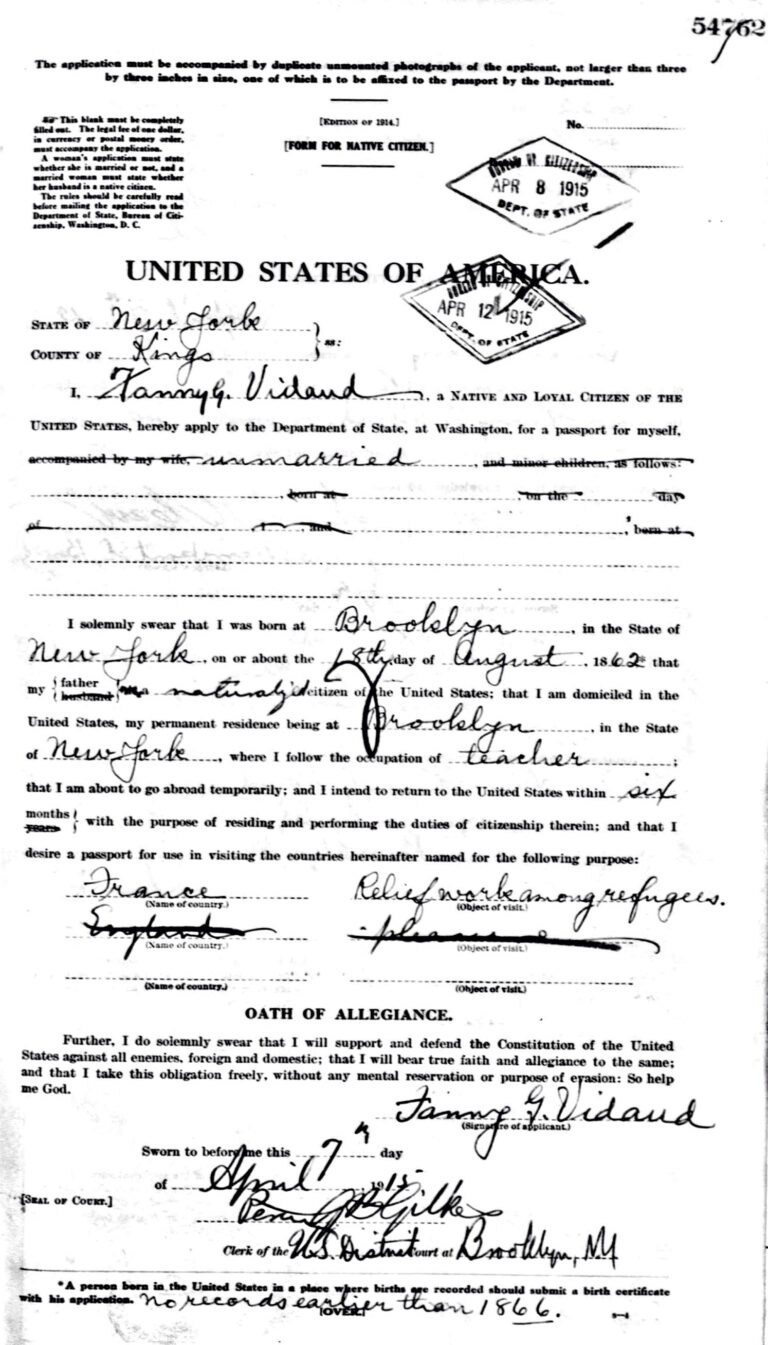 54762
The application must be accompanied by duplicate unmounted photographs of the applicant, not larger than three
by three inches in size, one of which is to be affixed to the passport by the Department.
This blank must be completely
filled out. The legal fee of one dollar,
in currency or postal money order,
must accompany the application.
A woman's application must state
whether she is married or not, and a
married woman must state whether
her husband is a native citizen.
The rules should be carefully read
before mailing the application to the
Department of State, Bureau of Citi-
zenship, Washington, D. C.
[EDITION OF 1914.]
[FORM FOR NATIVE CITIZEN.]
No.
BUREAU OF CITIZENSHIP
APR 8 1915
DEPT. OF STATE
UNITED STATES OF AMERICA.
BUREAU OF CITIZENSHIP
APR 12 1915
DEPT. OF STATE
STATE OF New York
COUNTY OF Kings
} ss:
I, Fanny G. Vidaud, a NATIVE AND LOYAL CITIZEN OF THE
UNITED STATES, hereby apply to the Department of State, at Washington, for a passport for myself,
accompanied by my wife, unmarried, and minor children, as follows:
, born at on the day
of , and , born at
I solemnly swear that I was born at Brooklyn, in the State of
New York, on or about the 18th day of August, 1862 that
my { father husband } a naturalized citizen of the United States; that I am domiciled in the
United States, my permanent residence being at Brooklyn, in the State
of New York, where I follow the occupation of teacher;
that I am about to go abroad temporarily; and I intend to return to the United States within six
months years } with the purpose of residing and performing the duties of citizenship therein; and that I
desire a passport for use in visiting the countries hereinafter named for the following purpose:
France Relief work among refugees.
(Name of country.) (Object of visit.)
England pleasure
(Name of country.) (Object of visit.)
(Name of country.) (Object of visit.)
OATH OF ALLEGIANCE.
Further, I do solemnly swear that I will support and defend the Constitution of the United
States against all enemies, foreign and domestic; that I will bear true faith and allegiance to the same;
and that I take this obligation freely, without any mental reservation or purpose of evasion: So help
me God.
Fanny G. Vidaud
(Signature of applicant.)
Sworn to before me this 7th day
of April 1915
[SEAL OF COURT.]
Percy G B Gilkes
Clerk of the U.S. District Court at Brooklyn, NY
*A person born in the United States in a place where births are recorded should submit a birth certificate
with his application. No records earlier than 1866.
[OVER]